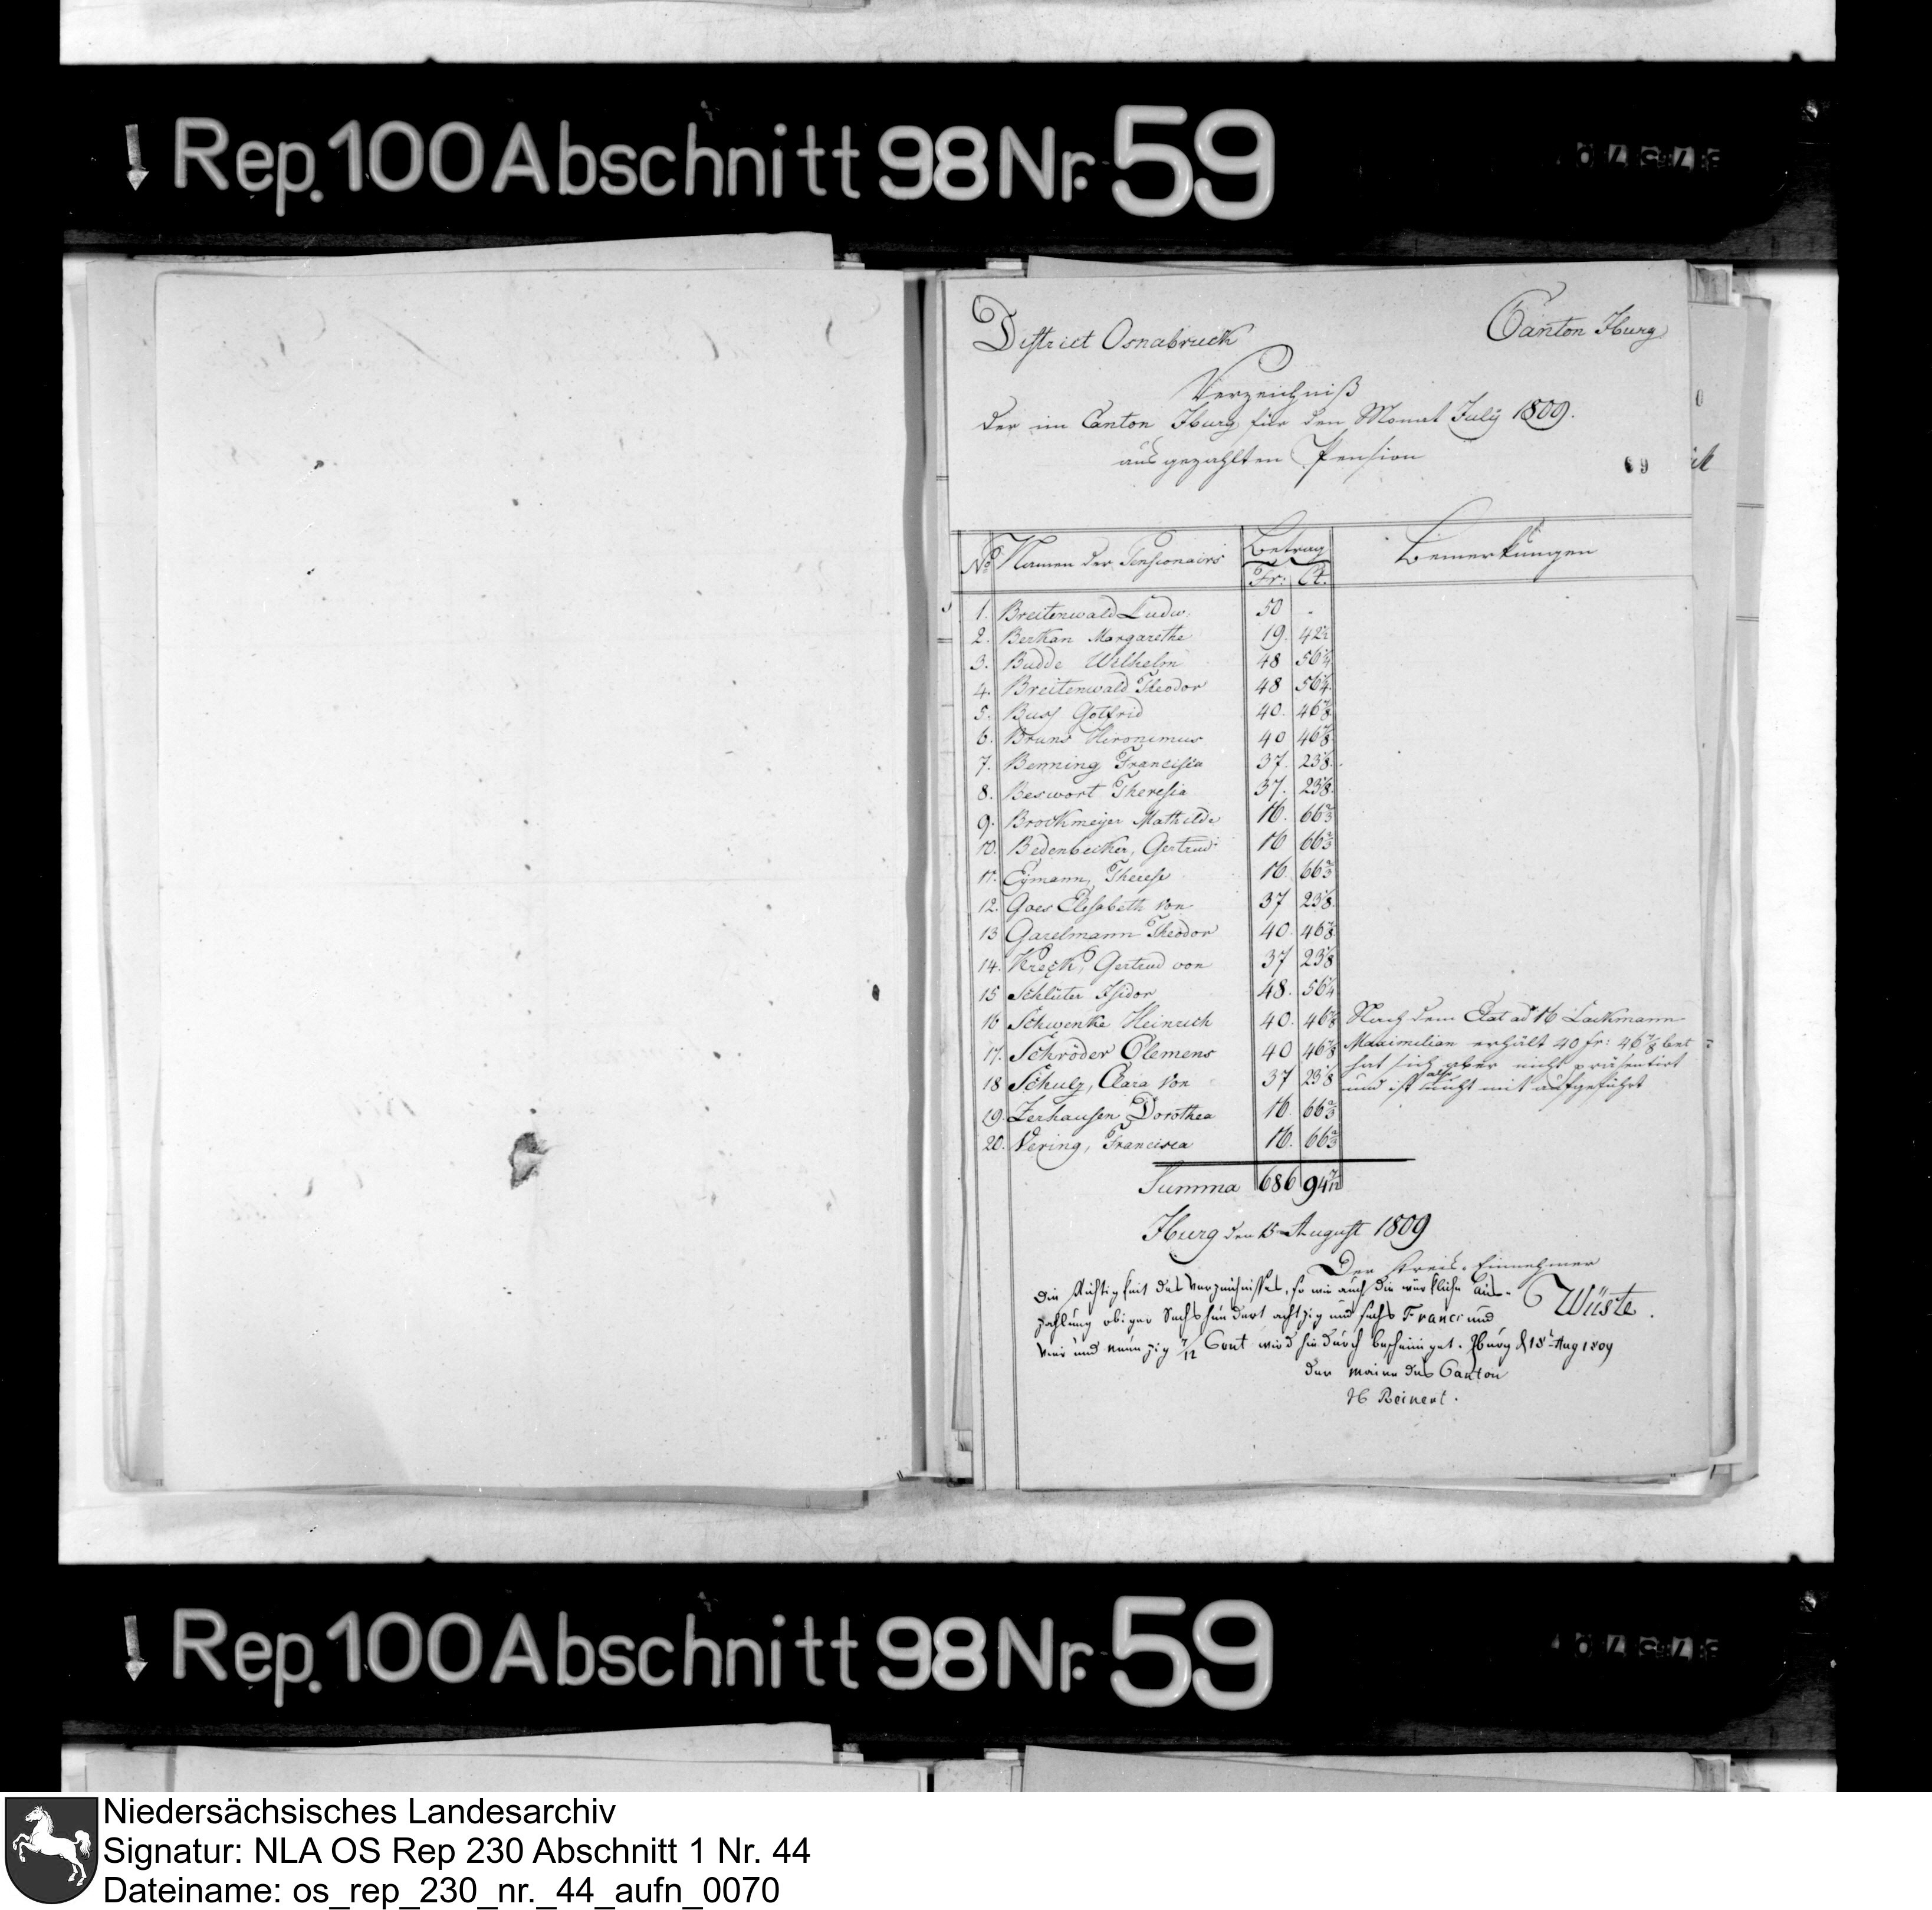 Rep. 100 Abschnitt 98 Nr. 59
District Osnabruck
Canton Iburg
Verzeichniß
der im Canton Iburg für den Monat July 1809.
ausgezahlten Pension
69
No Namen der Pensionairs Betrag Bemerkungen
Fr: Ct.
1. Breitenwald Ludw. 50 -
2. Berkan Margarethe 19. 42½
3. Budde Wilhelm 48 56¼
4. Breitenwald Theodor 48 56¼
5. Buss Gotfrid 40. 46⅞
6. Bruns Hironimus 40 46⅞
7. Benning Francisca 37. 23⅝
8. Beswort Theresia 37. 23⅝
9. Brockmeijer Mathilde 16. 66⅔
10. Bedenbecker, Gertrud 16 66⅔
11. Eymann, Therese 16 66⅔
12. Goes Elisabeth von 37 23⅝
13 Garelmann Theodor 40. 46⅞
14. Kreck, Gertrud von 37 23⅝
15 Schlüter Isidor 48. 56¼
16 Schwenke Heinrich 40. 46⅞ Nach dem Etat ad 16 Lackmann
17. Schröder Clemens 40 46⅞ Maximilian erhält 40 fr: 46⅞ Cent
hat sich aber nicht präsentirt
18 Schulz, Clara von 37 23⅝ und ist also nicht mit aufgeführt
19. Zerhausen Dorothea 16. 66⅔
20. Vering, Francisca 16. 66⅔
Summa 686 94 7/12
Iburg den 15 August 1809
Der Kreis-Einnehmer
Wüste.
Die Richtigkeit des Verzeichnisses, so wie auch die würkliche Aus-
zahlung obiger Sechshundert achtzig und sechs Francs und
vier und neunzig 7/12 Cent wird hiedurch bescheiniget. Iburg d 15t Aug 1809
der Maire des Canton
Reinert.
Rep. 100 Abschnitt 98 Nr. 59
Niedersächsisches Landesarchiv
Signatur: NLA OS Rep 230 Abschnitt 1 Nr. 44
Dateiname: os_rep_230_nr._44_aufn_0070